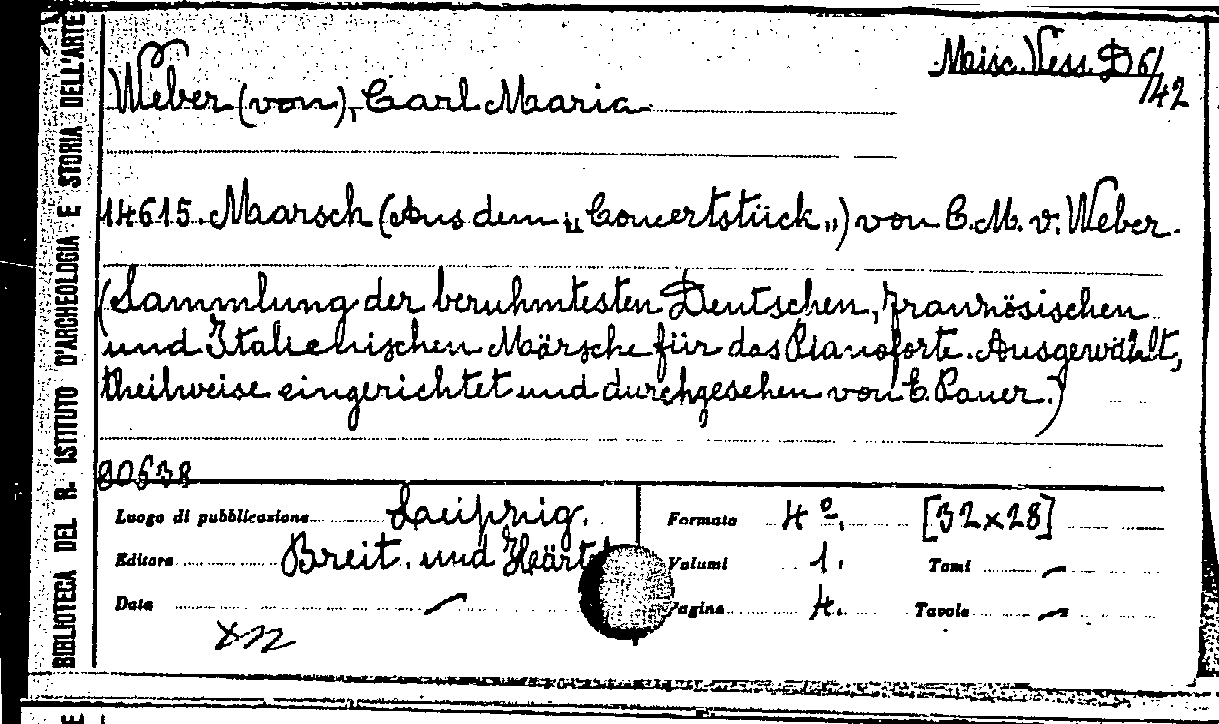 BIBLIOTECA DEL R. ISTITUTO D'ARCHEOLOGIA E STORIA DELL'ARTE
Misc. Vess. D 6/42
Weber (von), Carl Maria
14615. Marsch (Aus dem „Concertstück„) von C. M. v. Weber.
(Sammlung der beruhmtesten Deutschen, französischen
und Italienischen Märsche für das Pianoforte. Ausgewählt,
theilweise eingerichtet und durchgesehen von E. Pauer.)
80638
Luogo di pubblicazione Leipzig. Formato 4º. [32x28]
Editore Breit. und Härt Volumi 1. Tomi –
Data – Pagine 4. Tavole –